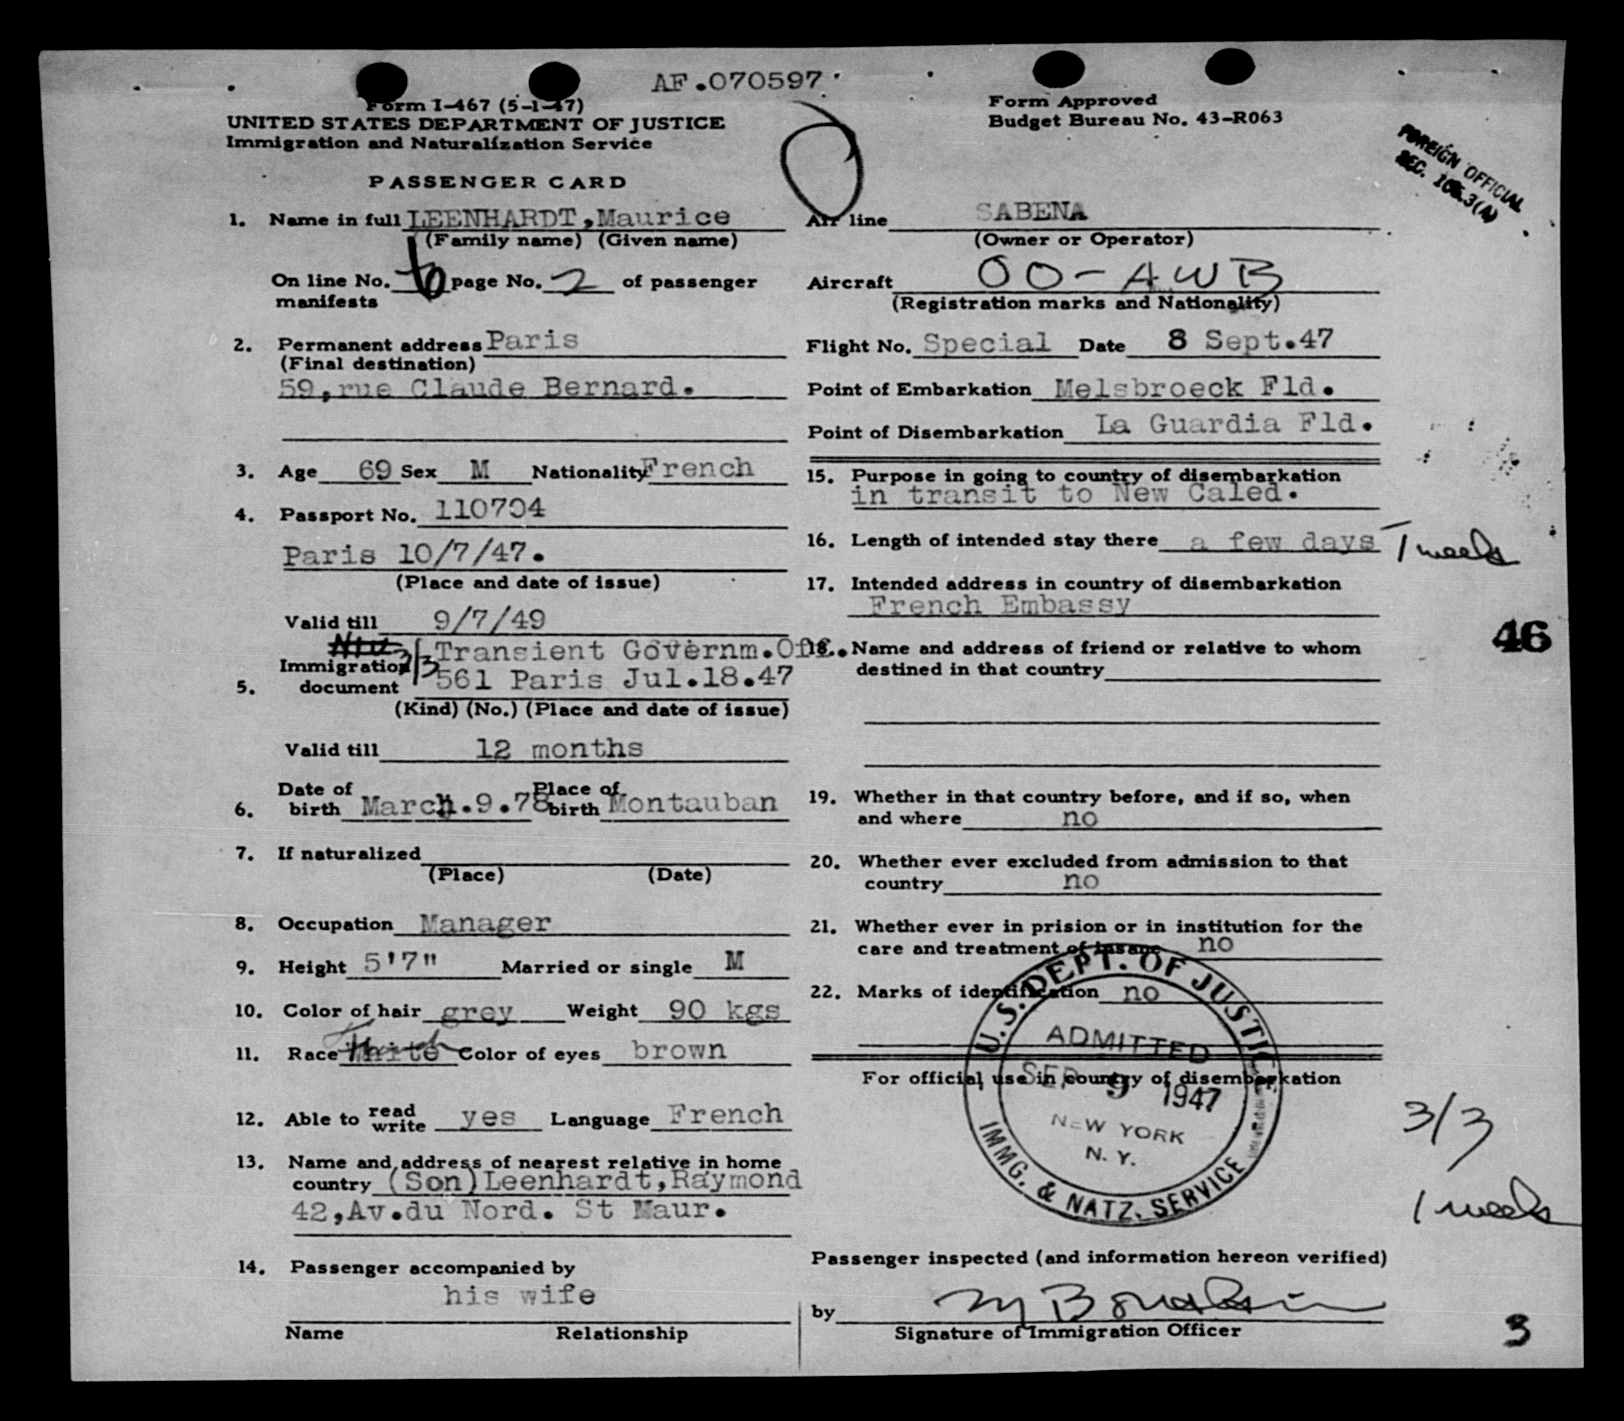 AF.070597
Form I-467 (5-1-47)
UNITED STATES DEPARTMENT OF JUSTICE
Immigration and Naturalization Service
PASSENGER CARD
Form Approved
Budget Bureau No. 43-R063
FOREIGN OFFICIAL
SEC. 3(A)
1. Name in full LEENHARDT, Maurice
(Family name) (Given name)
On line No. 6 page No. 2 of passenger
manifests
2. Permanent address Paris
(Final destination)
59, rue Claude Bernard.
3. Age 69 Sex M Nationality French
4. Passport No. 110704
Paris 10/7/47.
(Place and date of issue)
Valid till 9/7/49
3/3 Transient Governm.Off.
Immigration
5. document 561 Paris Jul.18.47
(Kind) (No.) (Place and date of issue)
Valid till 12 months
6. Date of birth March.9.78 Place of birth Montauban
7. If naturalized
(Place) (Date)
8. Occupation Manager
9. Height 5'7" Married or single M
10. Color of hair grey Weight 90 kgs
11. Race White Color of eyes brown
12. Able to read write yes Language French
13. Name and address of nearest relative in home
country (Son) Leenhardt, Raymond
42, Av.du Nord. St Maur.
14. Passenger accompanied by
his wife
Name Relationship
Air line SABENA
(Owner or Operator)
Aircraft OO-AWB
(Registration marks and Nationality)
Flight No. Special Date 8 Sept.47
Point of Embarkation Melsbroeck Fld.
Point of Disembarkation La Guardia Fld.
15. Purpose in going to country of disembarkation
in transit to New Caled.
16. Length of intended stay there a few days 1 week
17. Intended address in country of disembarkation
French Embassy
46
18. Name and address of friend or relative to whom
destined in that country
19. Whether in that country before, and if so, when
and where no
20. Whether ever excluded from admission to that
country no
21. Whether ever in prision or in institution for the
care and treatment of insane no
22. Marks of identification no
For official use in country of disembarkation
U.S. DEPT. OF JUSTICE
ADMITTED
SEP 9 1947
NEW YORK
N. Y.
IMMG. & NATZ. SERVICE
3/3
1 week
Passenger inspected (and information hereon verified)
by
Signature of Immigration Officer
3